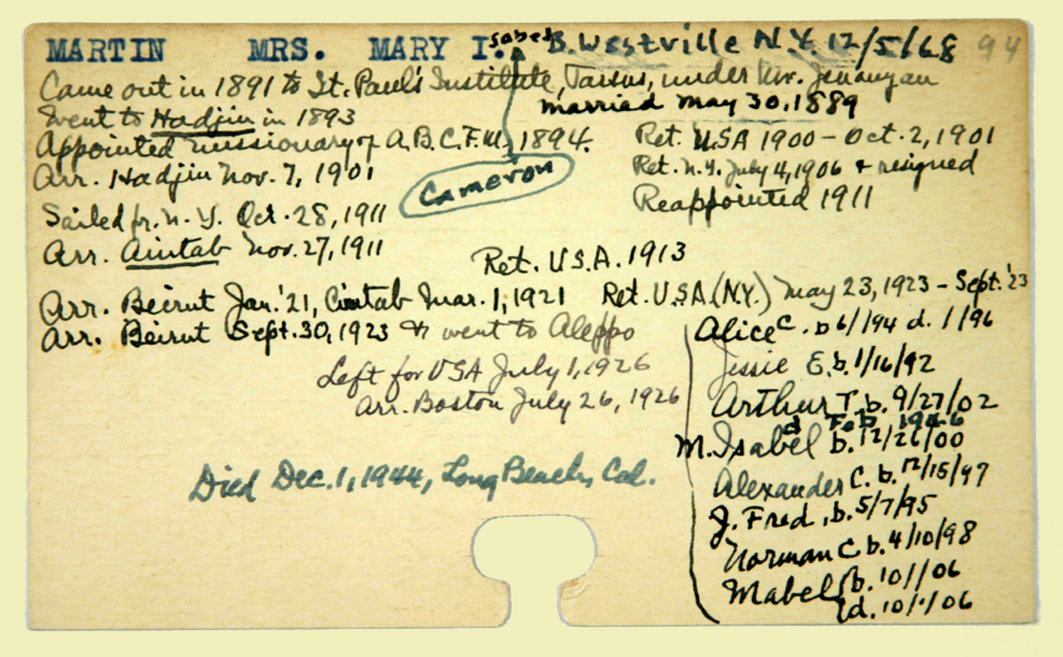 MARTIN MRS. MARY I.sabel B. Westville N.Y. 12/5/68 94
Came out in 1891 to St. Paul's Institute, Tarsus, under Mr. Jenanyan
married May 30, 1889
Went to Hadjin in 1893
Appointed missionary of A.B.C.F.M. 1894.
Ret. USA 1900 - Oct. 2, 1901
Arr. Hadjin Nov. 7, 1901
Cameron
Ret. N.Y. July 4, 1906 & resigned
Reappointed 1911
Sailed fr. N.Y. Oct. 28, 1911
Arr. Aintab Nov. 27, 1911
Ret. U.S.A. 1913
Arr. Beirut Jan. '21, Aintab Mar. 1, 1921 Ret. U.S.A. (N.Y.) May 23, 1923 - Sept. '23
Arr. Beirut Sept. 30, 1923 & went to Aleppo
Left for USA July 1, 1926
Arr. Boston July 26, 1926
Died Dec. 1, 1944, Long Beach, Cal.
Alice C. b 6/194 d. 1/96
Jessie E. b. 1/16/92
Arthur T. b. 9/27/02
d Feb 1946
M. Isabel b. 12/26/00
Alexander C. b. 12/15/97
J. Fred, b. 5/7/95
Norman C b. 4/10/98
Mabel b. 10/1/06
d. 10/1/06